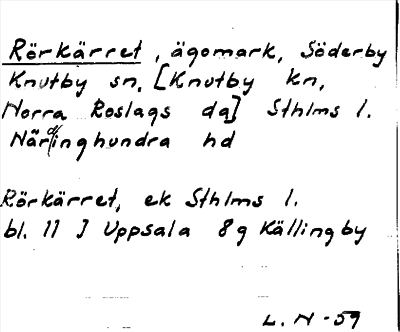 Rörkärret, ägomark, Söderby
Knutby sn, [Knutby kn,
Norra Roslags dg] Sthlms l.
Närdinghundra hd
Rörkärret, ek Sthlms l.
bl. 11 J Uppsala 8g Källingby
L. N-59